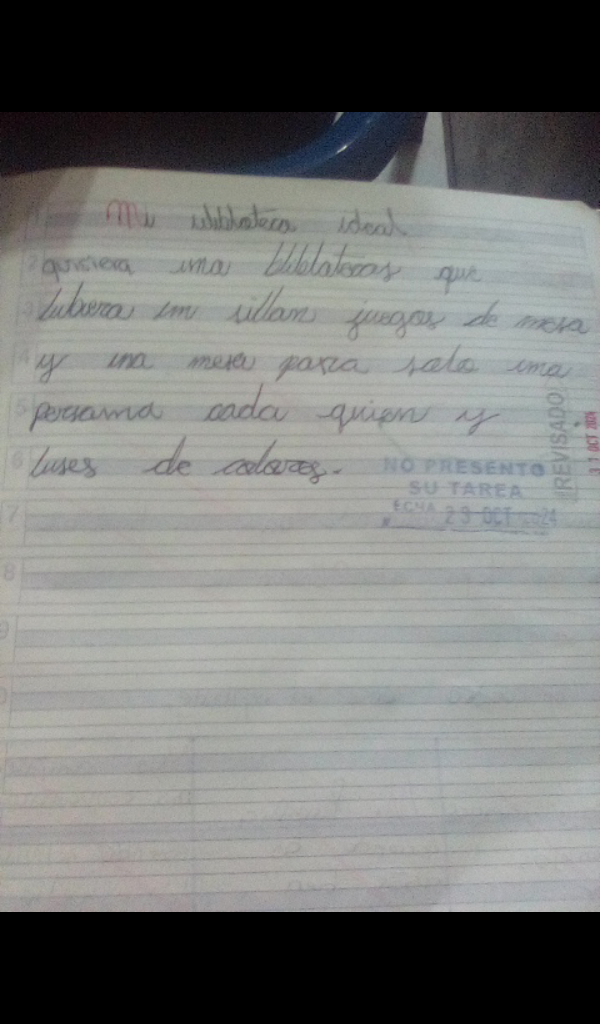 Mi bliblioteca ideal
quisiera una bliblatecas que
hubiera un sillan juegos de mesa
y una mesa para solo una
persama cada quien y
luses de colores.
NO PRESENTO
SU TAREA
FECHA 29 OCT 2024
REVISADO
31 OCT 2024
1
2
3
4
5
6
7
8
9